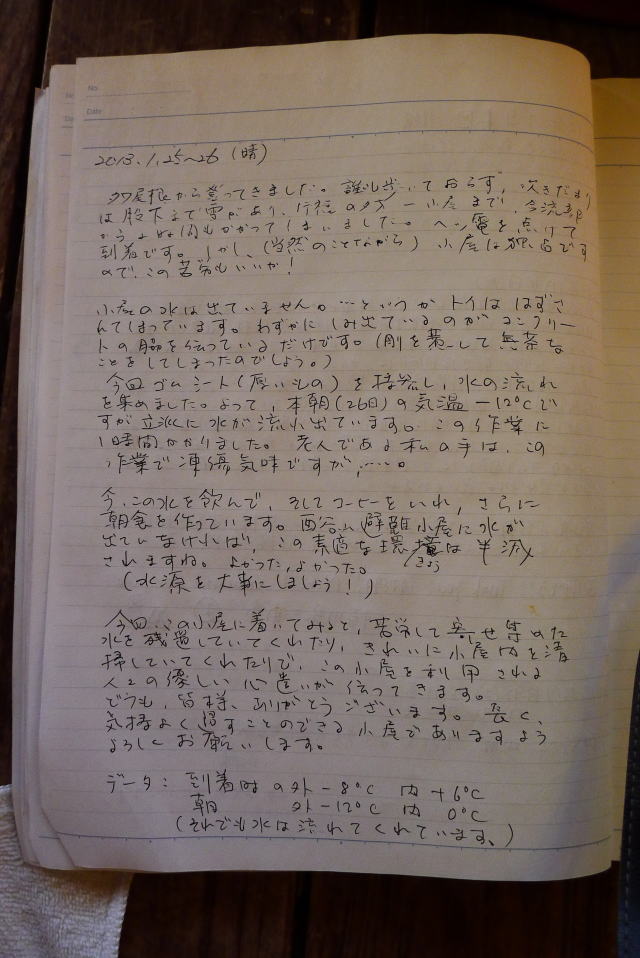 No.
Date
2013.1.25~26 (晴)
タワ尾根から登ってきました。誰も歩いておらず、吹きだまり
は股下まで雪があり、行福のタオー小屋まで、合流点
からよ時間もかかってしまいました。ヘッ電を点けて
到着です。しかし、(当然のことながら) 小屋は独占です
ので、この苦労もいいか!
小屋の水は出ていません。…というかトイははずさ
れてしまっています。わずかにしみ出ているのがコンクリー
トの脇を伝っているだけです。(剛を煮やして無茶な
ことをしてしまったのでしょう。)
今回ゴムシート(厚いもの)を接続し、水の流れ
を集めました。よって、本朝(26日)の気温-12°Cで
すが立派に水が流れ出ています。この作業に
1時間かかりました。老人である私の手は、この
作業で凍傷気味ですが、……。
今、この水を飲んで、そしてコーヒーをいれ、さらに
朝食を作っています。酉谷山避難小屋に水が
出ていなければ、この素適な環境は半減
きょう
されますね。よかった、よかった。
(水源を大事にしましょう!)
今回、この小屋に着いてみると、苦労して寄せ集めた
水を残置していてくれたり、きれいに小屋内を清
掃していてくれたりで、この小屋を利用される
人々の優しい心遣いが伝ってきます。
どうも、皆様、ありがとうございます。長く、
気持よく過すことのできる小屋でありますよう
よろしくお願いします。
データ: 到着時の外-8°C 内+6°C
朝 外-12°C 内 0°C
(それでも水は流れてくれています。)